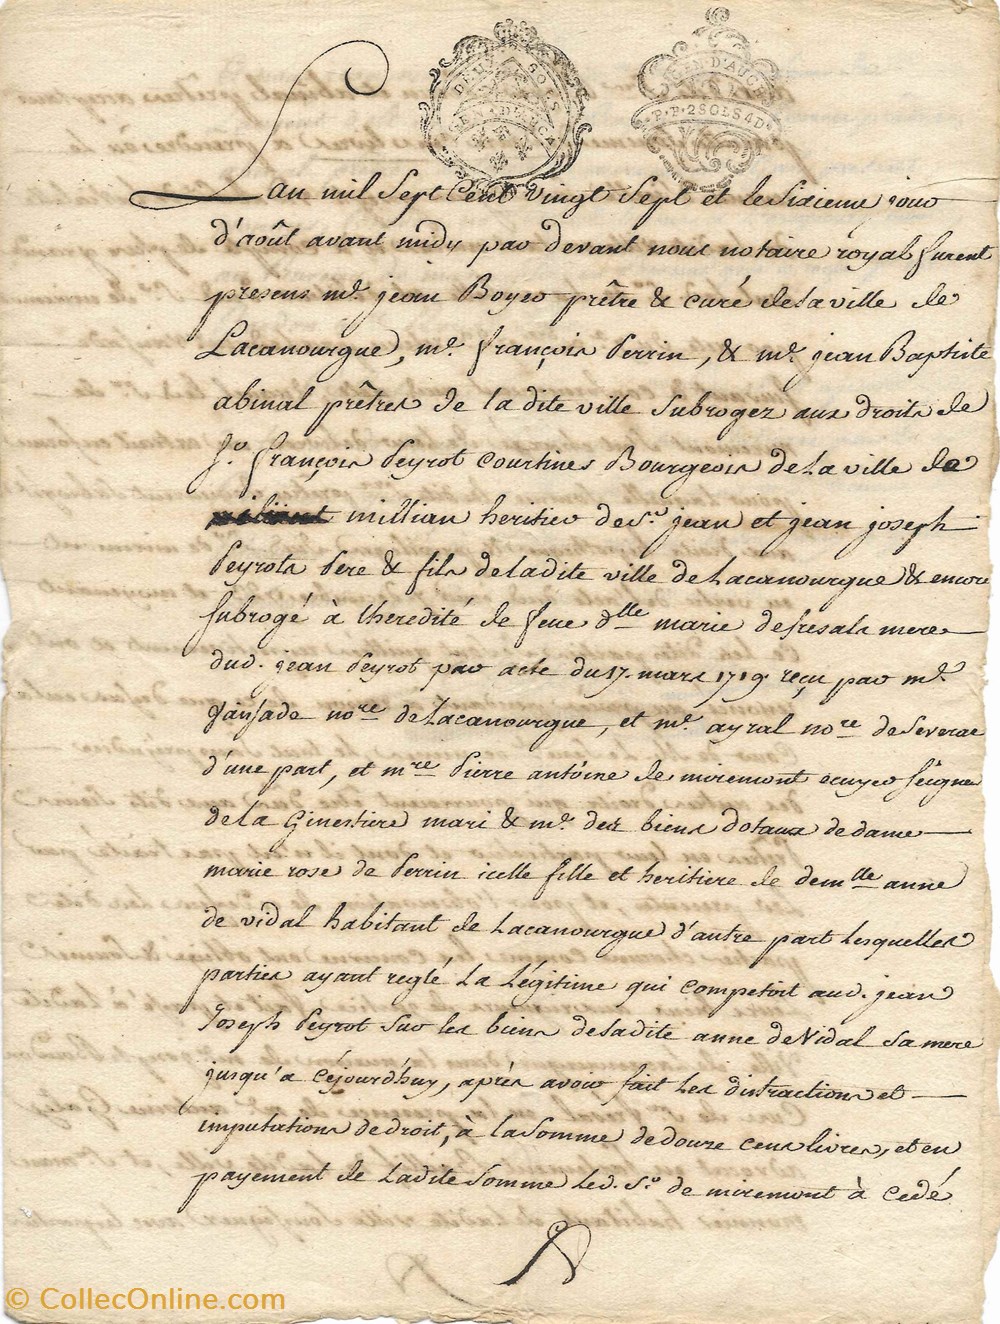 DEUX SOLS
GEN D'AUCH
GEN D'AUCH
P.P. 2 SOLS 4 D
L'an mil sept cent vingt sept et le sixieme jour
d'août avant midy par devant nous notaire royal furent
presens me. jean Boyer prêtre & curé de la ville de
Lacanourgue, me. françois Perrin, & me. jean Baptiste
abinal prêtres de ladite ville subrogez aux droits de
Sr. françois Peyrot Courtines Bourgeois de la ville de
millian heritier de Sr. jean et jean joseph
Peyrots Pere & fils de ladite ville de Lacanourgue & encore
subrogé à lheredité de feue dlle marie defresals mere
dud. jean Peyrot par acte du 17. mars 1719. reçu par me.
nore. de Lacanourgue, et me. ayral nore. de Severac
d'une part, et mre Pierre antoine de miremont ecuyer seigne
de la Ginestiere mari & me. des biens dotaux de dame
marie rose de Perrin icelle fille et heritiere de demlle anne
de vidal habitant de Lacanourgue d'autre part lesquelles
parties ayant reglé la Légitime qui competoit aud. jean
Joseph Peyrot sur les biens de ladite anne de Vidal sa mere
jusqu'a cejourd'huy, après avoir fait les distractions et
imputations de droit, à la somme de douze cens livres, et en
payement de ladite somme led. Sr. de miremont à cedé
© CollecOnline.com